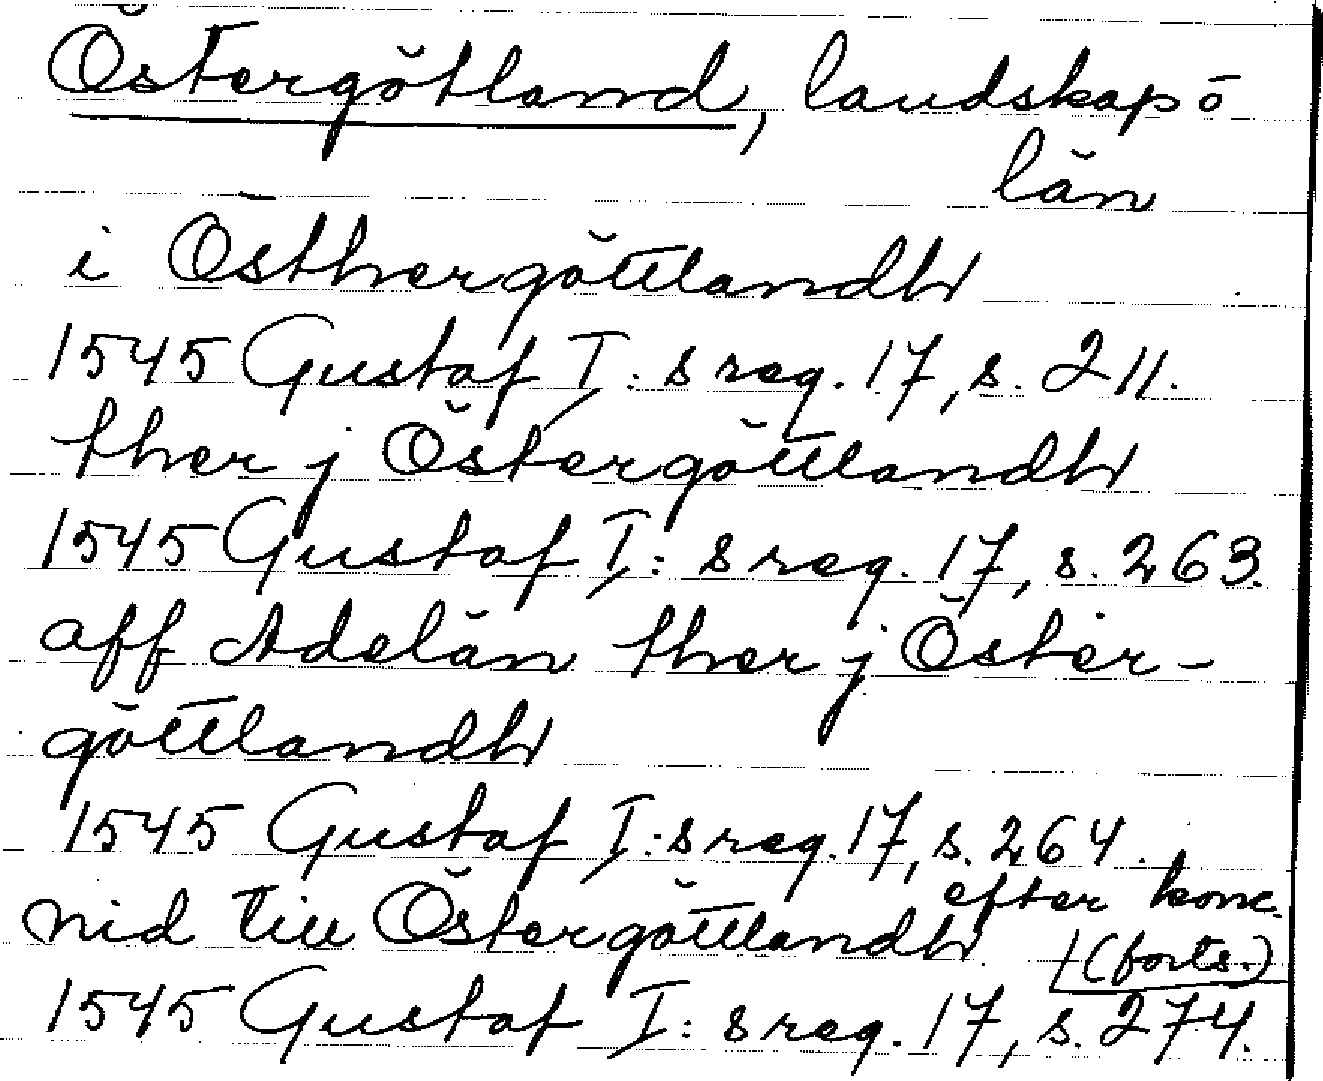 Östergötland, landskap o
län
i Östhergöttlandh
1545 Gustaf I:s reg. 17, s. 211.
ther j Östergöttlandh
1545 Gustaf I:s reg. 17, s. 263.
aff Adelän ther j Öster-
göttlandh
1545 Gustaf I:s reg. 17, s. 264.
efter konc.
nid till Östergöttlandh
(forts.)
1545 Gustaf I:s reg. 17, s. 274.